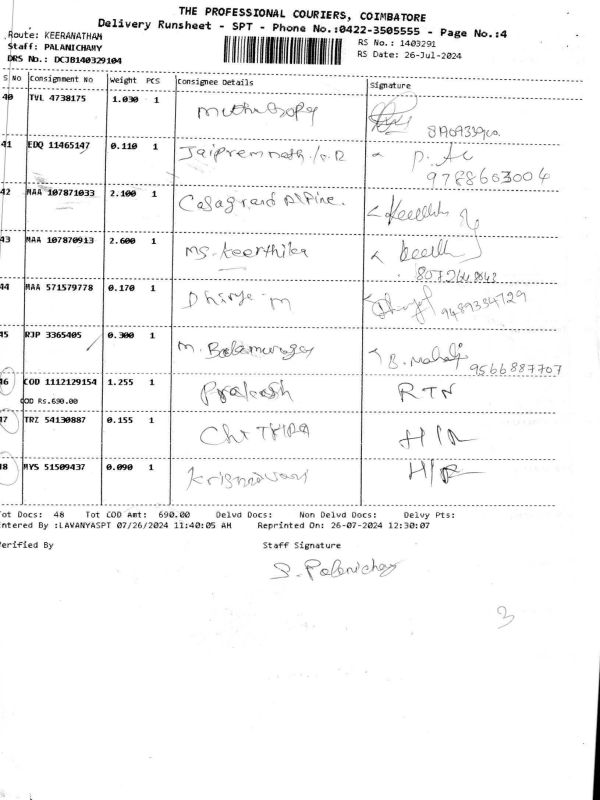 THE PROFESSIONAL COURIERS, COIMBATORE
Delivery Runsheet - SPT - Phone No.:0422-3505555 - Page No.:4
Route: KEERANATHAM
RS No.: 1403291
Staff: PALANICHAMY
RS Date: 26-Jul-2024
DRS No.: DCJB140329104
S No Consignment No Weight PCS Consignee Details Signature
40 TVL 4738175 1.030 1
41 EDQ 11465147 0.110 1 Jaipremnath
P.
9788603004
42 MAA 107871033 2.100 1 Casagrand Alpine.
43 MAA 107870913 2.600 1 MS. Keerthika
44 MAA 571579778 0.170 1 Dhivya M
9489334729
45 RJP 3365405 0.300 1 M. Balamurugan
B. Mahali
9566887707
46 COD 1112129154 1.255 1 Prakash RTN
COD Rs.690.00
47 TRZ 54130887 0.155 1 H/R
48 MYS 51509437 0.090 1 Krishnavani H/R
Tot Docs: 48 Tot COD Amt: 690.00 Delvd Docs: Non Delvd Docs: Delvy Pts:
Entered By :LAVANYASPT 07/26/2024 11:40:05 AM Reprinted On: 26-07-2024 12:30:07
Verified By Staff Signature
S. Palanichamy
3